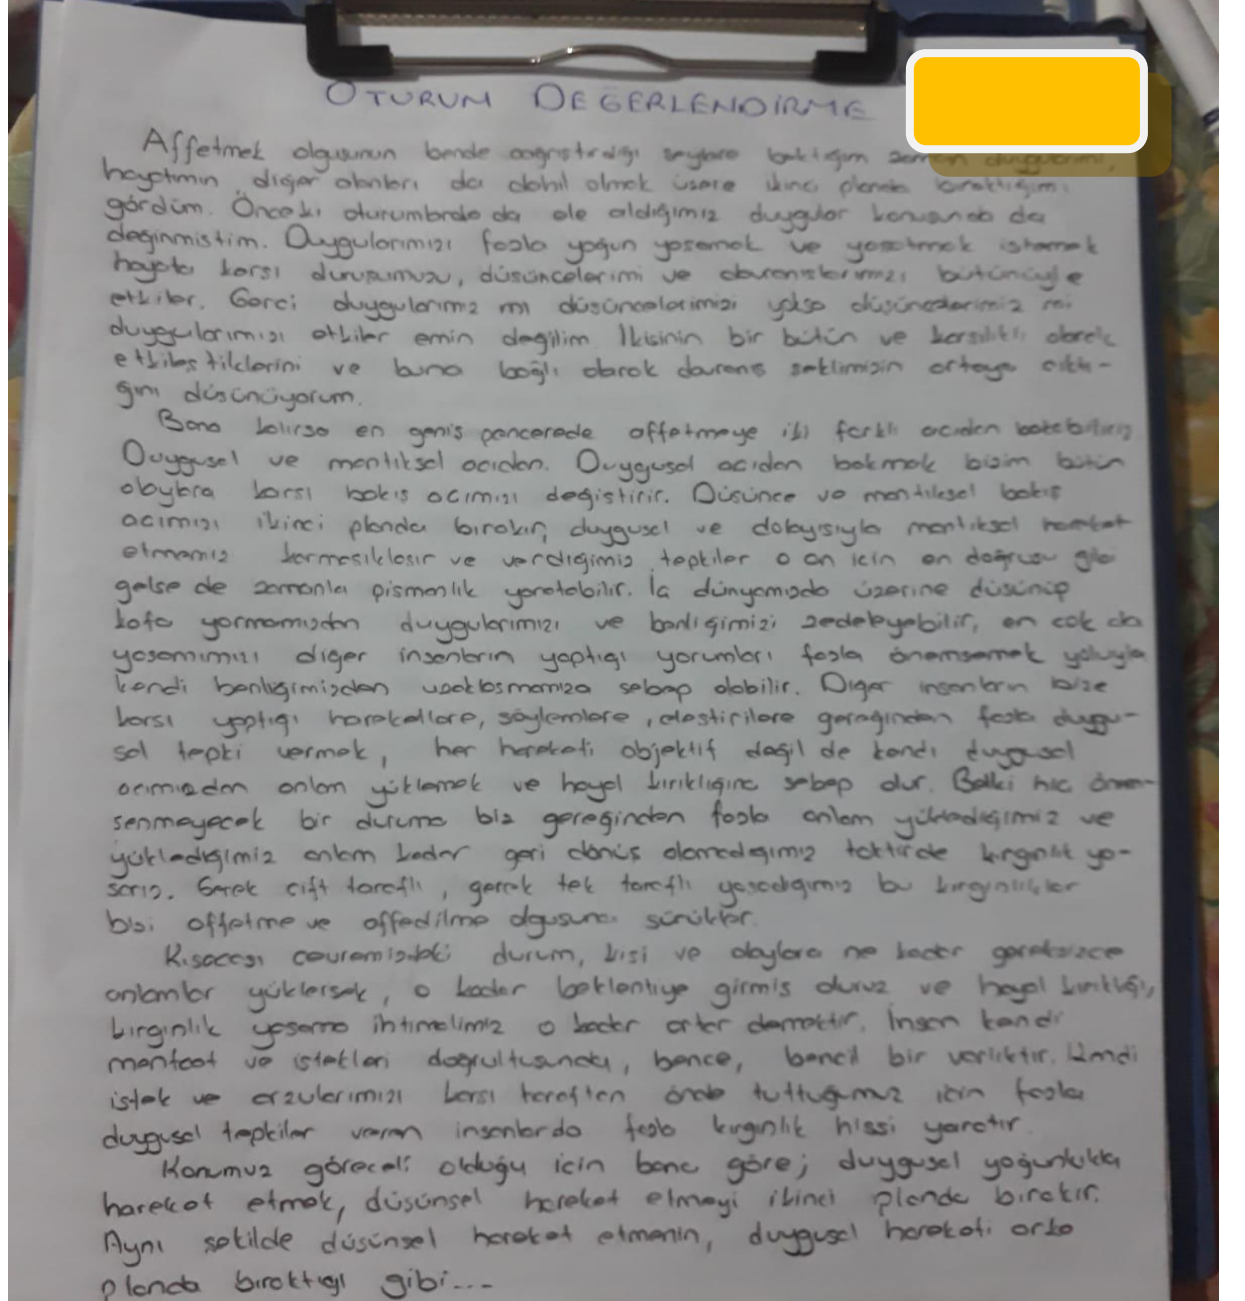 OTURUM DEĞERLENDİRME
Affetmek olgusunun bende çağrıştırdığı şeylere baktığım zaman duygularımı,
hayatımın diğer alanları da dahil olmak üzere ikinci planda bıraktığımı
gördüm. Önceki oturumlarda da ele aldığımız duygular konusunda da
değinmiştim. Duygularımızı fazla yoğun yaşamak ve yaşatmak istemek
hayata karşı duruşumuzu, düşüncelerimi ve davranışlarımızı bütünüyle
etkiler. Gerçi duygularımız mı düşüncelerimizi yoksa düşüncelerimiz mi
duygularımızı etkiler emin değilim. İkisinin bir bütün ve karşılıklı olarak
etkileştiklerini ve buna bağlı olarak davranış şeklimizin ortaya çıktı-
ğını düşünüyorum.
Bana kalırsa en geniş pencerede affetmeye iki farklı açıdan bakabiliriz
Duygusal ve mantıksal açıdan. Duygusal açıdan bakmak bizim bütün
olaylara karşı bakış açımızı değiştirir. Düşünce ve mantıksal bakış
açımızı ikinci planda bırakır, duygusal ve dolayısıyla mantıksal hareket
etmemiz karmaşıklaşır ve verdiğimiz tepkiler o an için en doğrusu gibi
gelse de zamanla pişmanlık yaratabilir. İç dünyamızda üzerine düşünüp
kafa yormamızdan duygularımızı ve benliğimizi zedeleyebilir, en çok da
yaşamımızı diğer insanların yaptığı yorumları fazla önemsemek yoluyla
kendi benliğimizden uzaklaşmamıza sebep olabilir. Diğer insanların bize
karşı yaptığı hareketlere, söylemlere, eleştirilere gereğinden fazla duygu-
sal tepki vermek, her hareketi objektif değil de kendi duygusal
acımızdan anlam yüklemek ve hayal kırıklığına sebep olur. Belki hiç önem-
senmeyecek bir duruma biz gereğinden fazla anlam yüklediğimiz ve
yüklediğimiz anlam kadar geri dönüş alamadığımız taktirde kırgınlık ya-
şarız. Gerek çift taraflı, gerek tek taraflı yaşadığımız bu kırgınlıklar
bizi affetme ve affedilme olgusuna sürükler.
Kısacası çevremizdeki durum, kişi ve olaylara ne kadar gereksizce
anlamlar yüklersek, o kadar beklentiye girmiş oluruz ve hayal kırıklığı,
kırgınlık yaşama ihtimalimiz o kadar artar demektir. İnsan kendi
menfaat ve istekleri doğrultusunda, bence, bencil bir varlıktır. Kendi
istek ve arzularımızı karşı taraftan önde tuttuğumuz için fazla
duygusal tepkiler veren insanlarda fazla kırgınlık hissi yaratır.
Konumuz göreceli olduğu için bana göre; duygusal yoğunlukla
hareket etmek, düşünsel hareket etmeyi ikinci planda bırakır.
Aynı şekilde düşünsel hareket etmenin, duygusal hareketi arka
planda bıraktığı gibi...